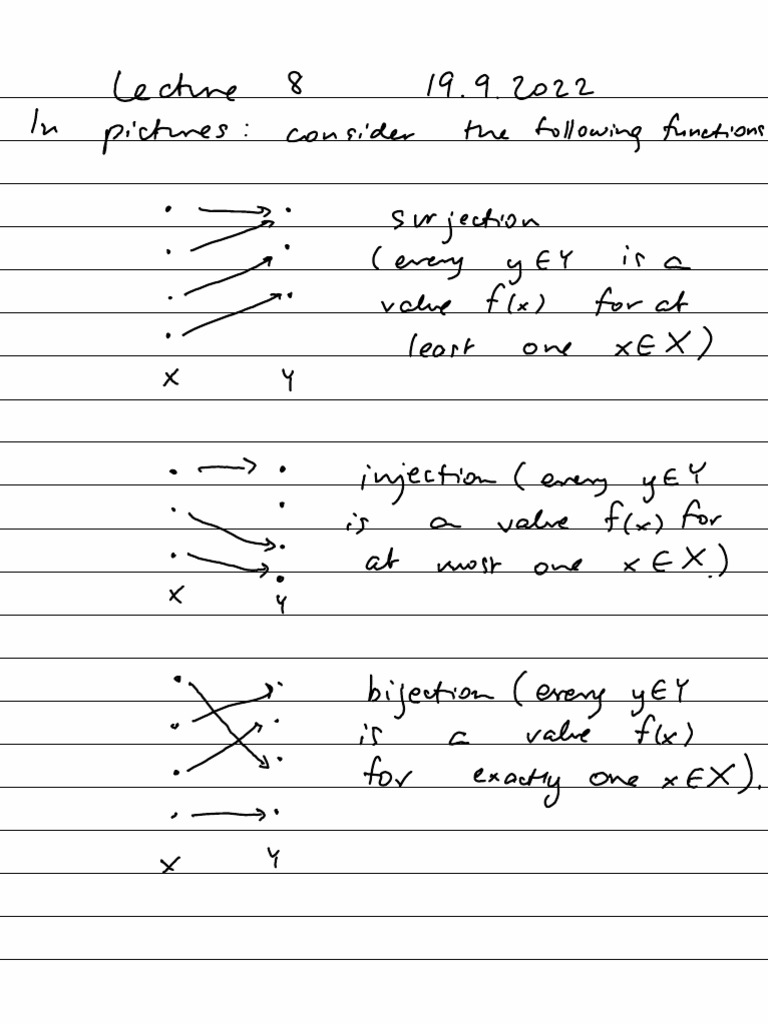 Lecture 8 19.9.2022
In pictures: consider the following functions
surjection
(every y∈Y is a
value f(x) for at
least one x∈X)
X Y
injection (every y∈Y
is a value f(x) for
at most one x∈X.)
X Y
bijection (every y∈Y
is a value f(x)
for exactly one x∈X).
X Y